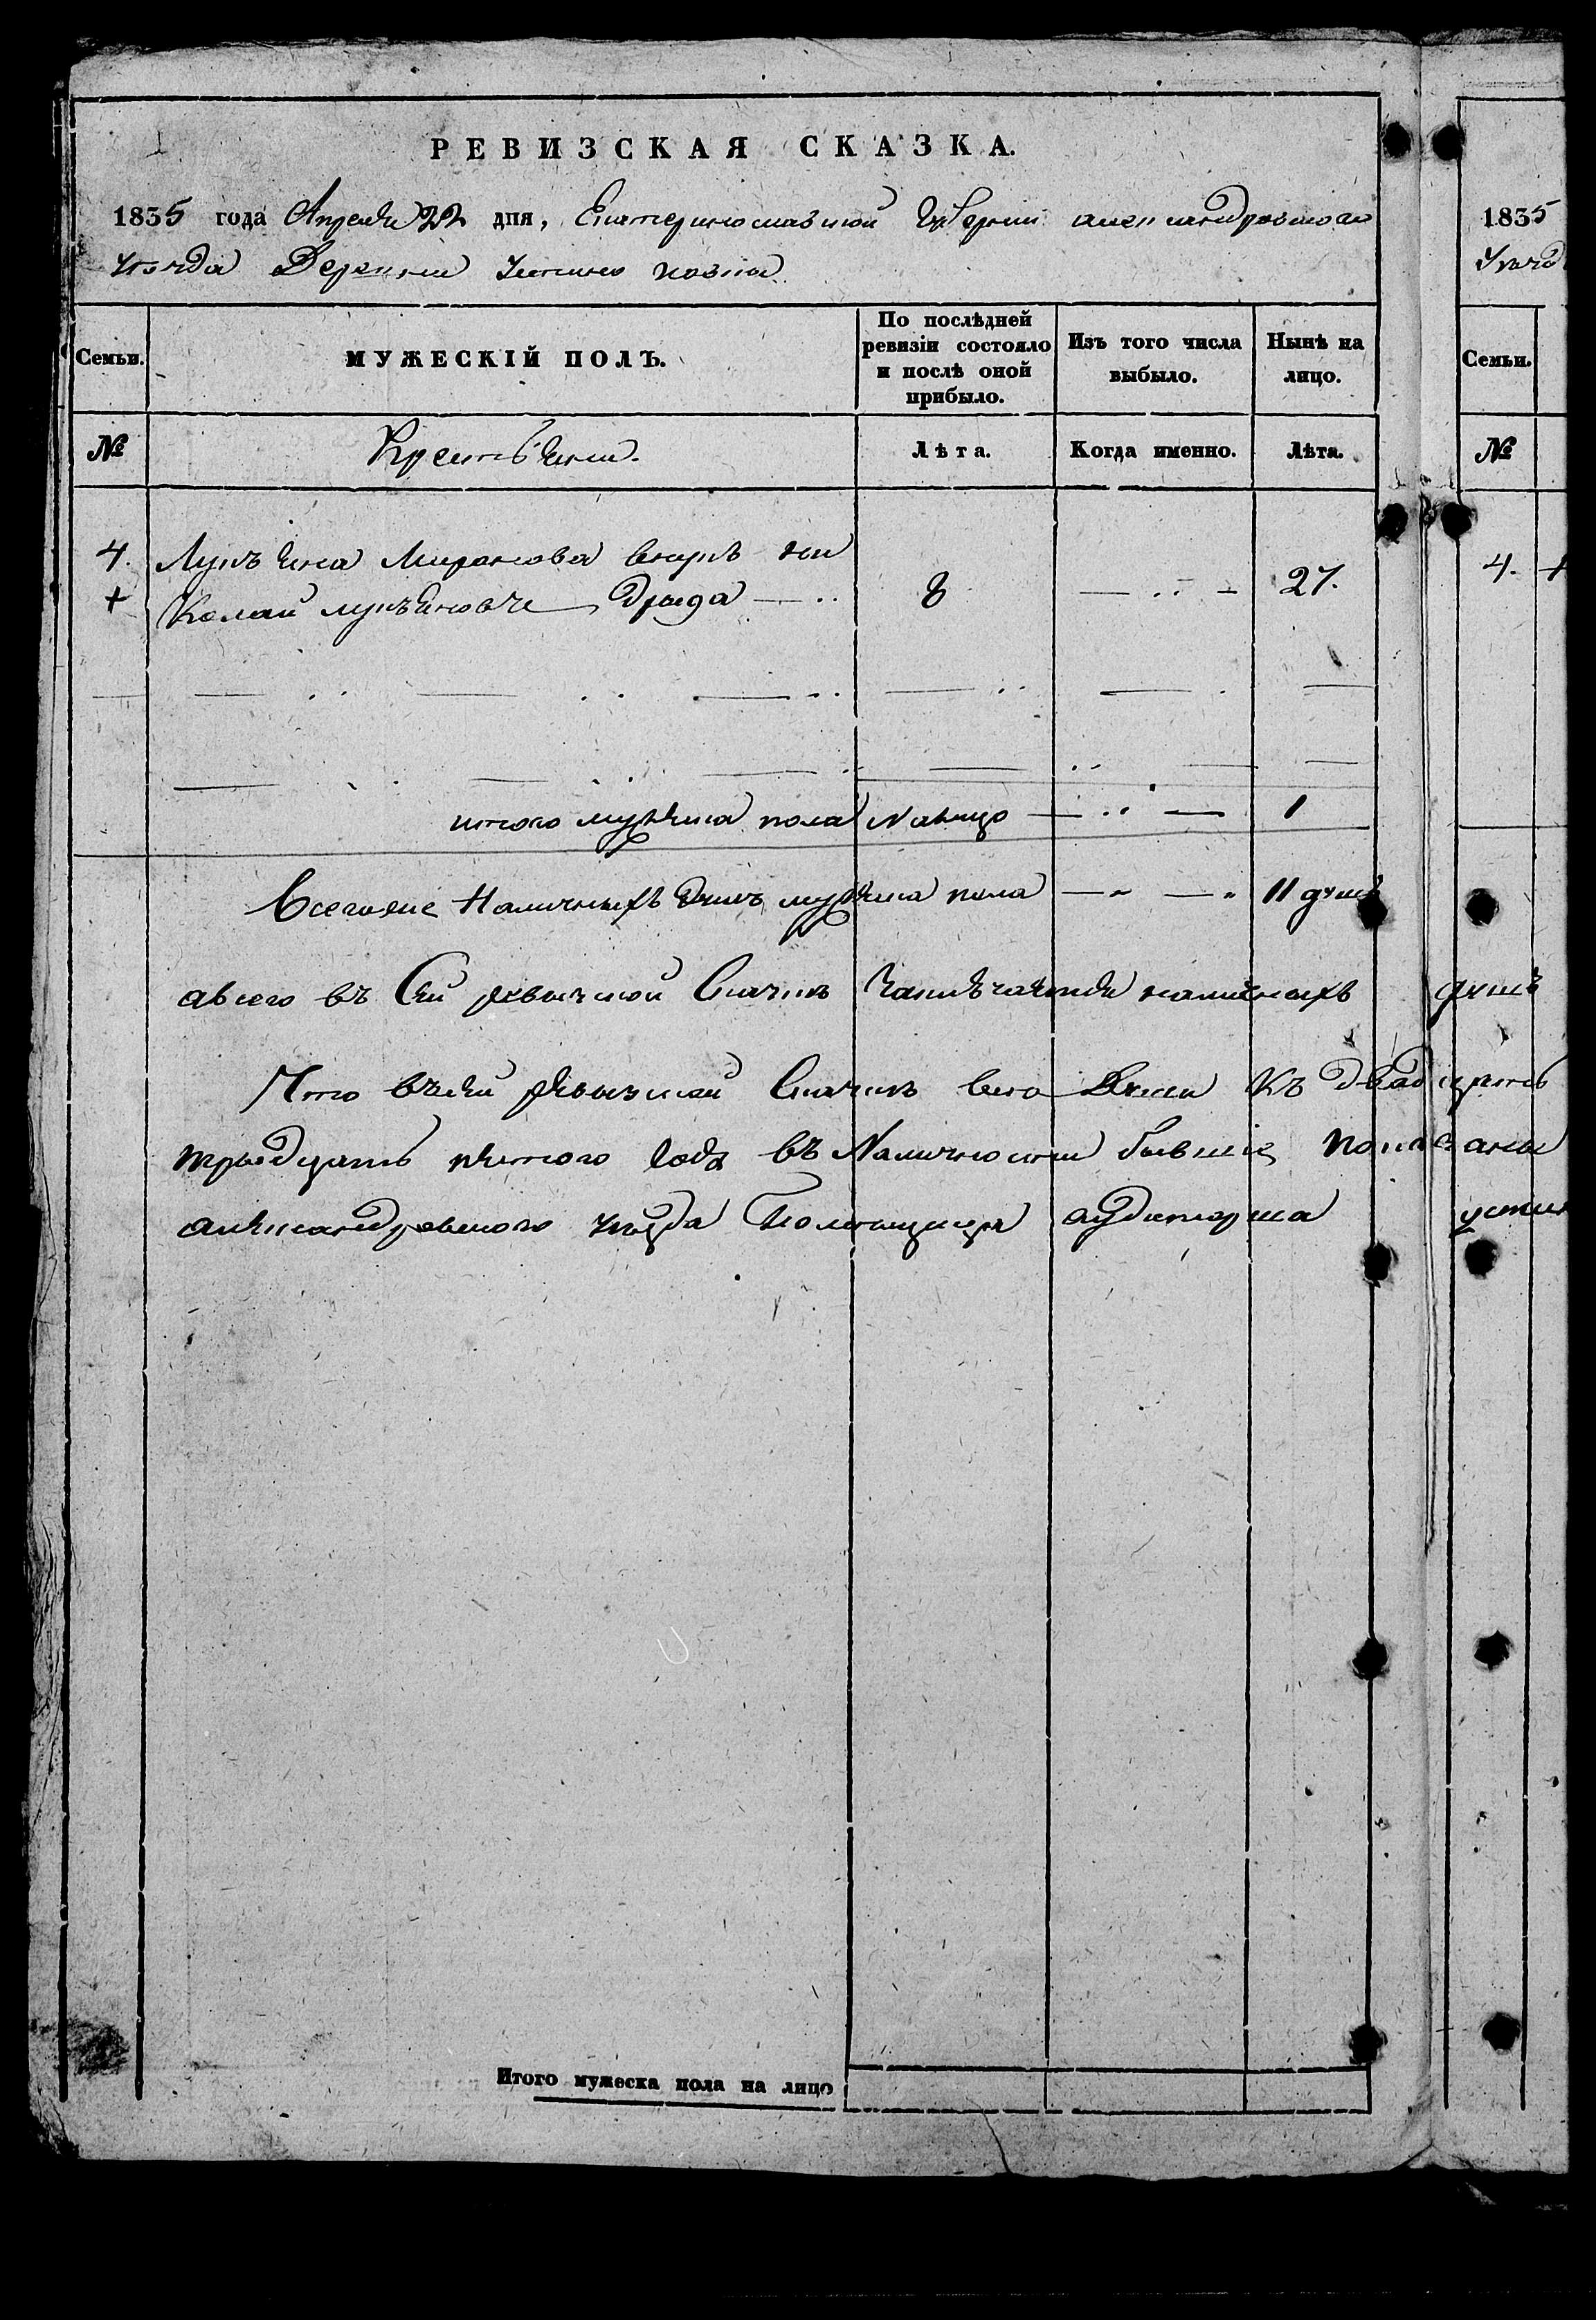 РЕВИЗСКАЯ СКАЗКА.
1835 года Апреля 22 дня, Екатеринославской Губернии александровского
уезда Деревни
Семьи.
МУЖЕСКІЙ ПОЛЪ.
По послѣдней ревизіи состояло и послѣ оной прибыло.
Изъ того числа выбыло.
Нынѣ на лицо.
№
Крестьяни.
Лѣта.
Когда именно.
Лѣта.
4. Лукъяна Миронова
+ лукъяновъ 8 27.
итого мужеска пола налицо 1
Всегоже Наличныхъ душъ мужеска пола 11 душъ
авсего въ Сей ревизской Сказки наличныхъ душъ
Что въсей ревизской Сказки все Души
тридцать пятого года въ Наличности бывшие показаны
александровского уезда Помещица
Итого мужеска пола на лицо
1835
Семьи.
№
4. +